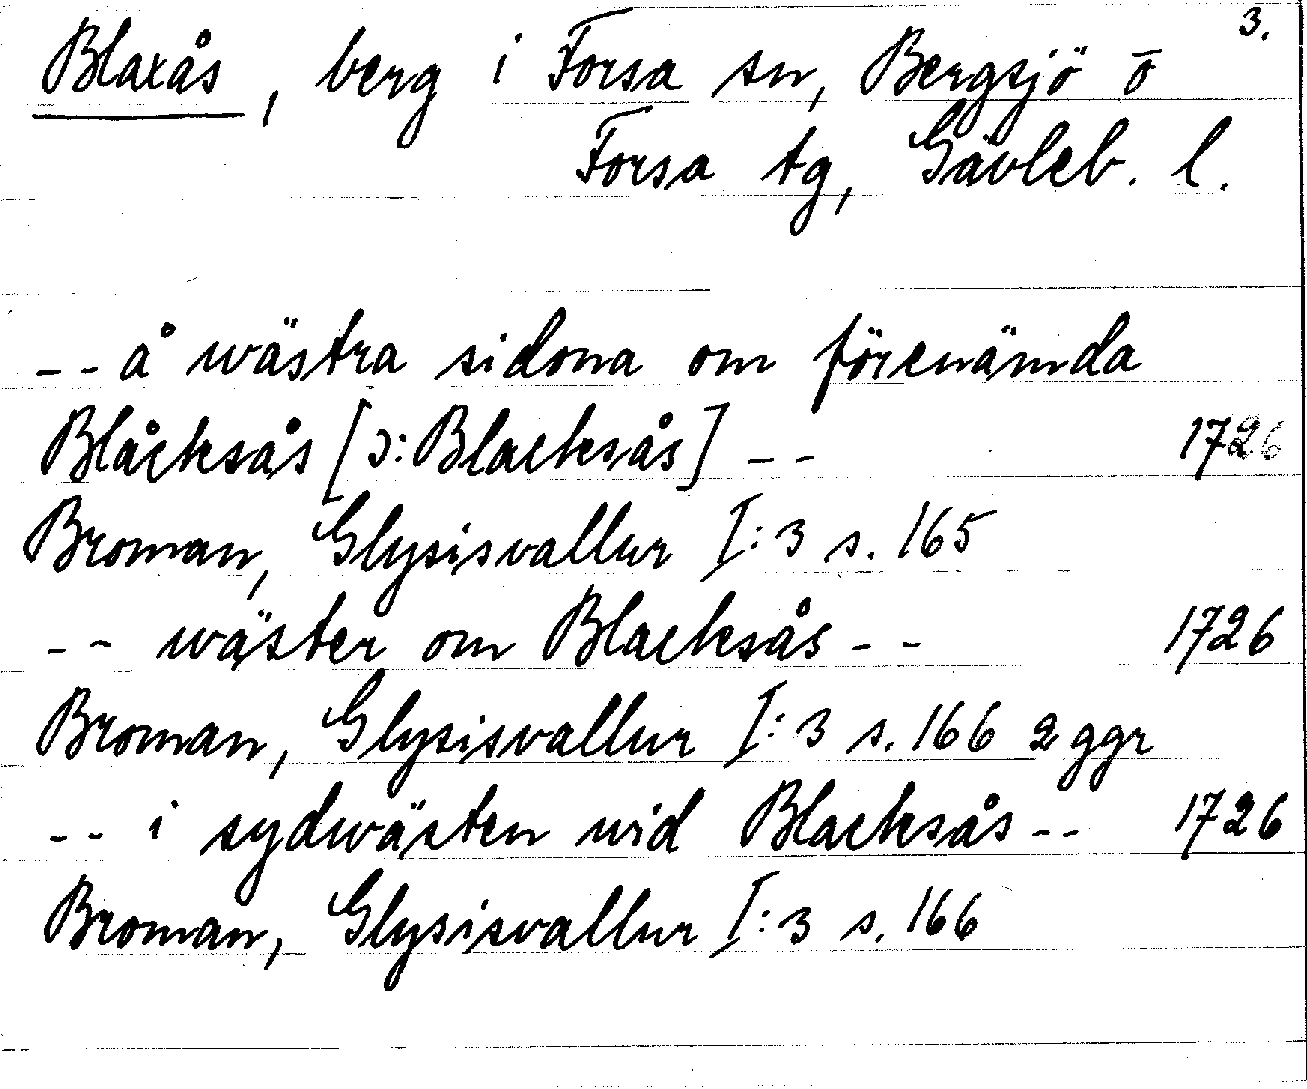 3.
Blaxås, berg i Forsa sn, Bergsjö o̅
Forsa tg, Gävleb. l.
-- å wästra sidona om förenämda
Blåcksås [ɔ: Blacksås] -- 1726
Broman, Glysisvallur I:3 s. 165
-- wäster om Blacksås -- 1726
Broman, Glysisvallur I:3 s. 166 2 ggr
-- i sydwästen wid Blacksås -- 1726
Broman, Glysisvallur I:3 s. 166